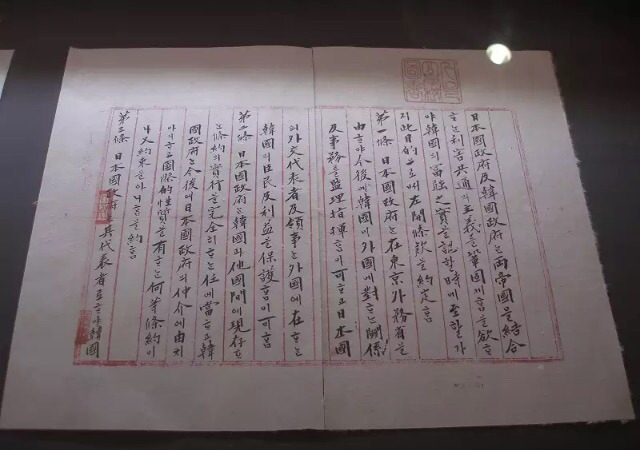 日本國政府及韓國政府는兩帝國을結合
ᄒᆞ는利害共通의主義를鞏固케ᄒᆞᆷ을欲ᄒᆞ
야韓國의富强之實을認ᄒᆞᆯ時에至ᄒᆞᆯ가
지此目的으로써左開條款을約定ᄒᆞᆷ
第一條 日本國政府는在東京外務省을
由ᄒᆞ야今後에韓國이外國에對ᄒᆞ는關係
及事務를監理指揮ᄒᆞᆷ이可ᄒᆞ고日本國
의外交代表者及領事는外國에在ᄒᆞ는
韓國의臣民及利益을保護ᄒᆞᆷ이可ᄒᆞᆷ
第二條 日本國政府는韓國과他國間에現存ᄒᆞ
는條約의實行을完全히ᄒᆞ는任에當ᄒᆞ고韓
國政府는今後에日本國政府의仲介에由치
아니ᄒᆞ고國際的性質을有ᄒᆞ는何等條約이
나又約束을아니ᄒᆞᆷ을約ᄒᆞᆷ
第三條 日本國政府는其代表者로ᄒᆞ야韓國